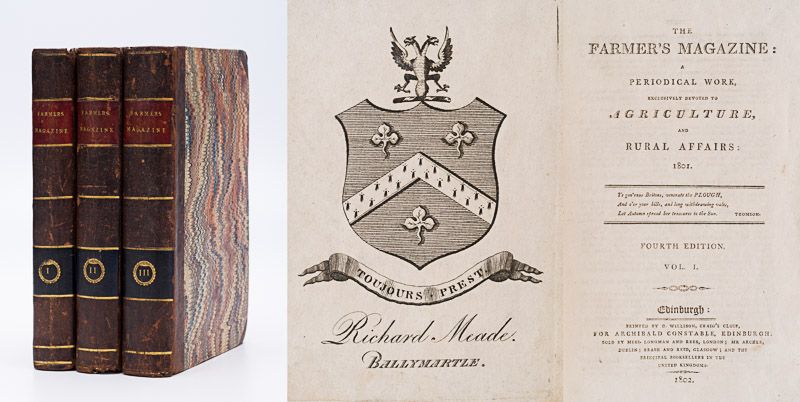 FARMERS
MAGAZINE
I
FARMERS
MAGAZINE
II
FARMERS
MAGAZINE
III
TOUJOURS PREST.
Richard Meade.
BALLYMARTLE.
THE
FARMER'S MAGAZINE:
A
PERIODICAL WORK,
EXCLUSIVELY DEVOTED TO
AGRICULTURE,
AND
RURAL AFFAIRS:
1801.
Ye gen'rous Britons, venerate the PLOUGH,
And o'er your hills, and long withdrawing vales,
Let Autumn spread her treasures to the Sun. THOMSON.
FOURTH EDITION.
VOL. I.
Edinburgh:
PRINTED BY D. WILLISON, CRAIG'S CLOSE,
FOR ARCHIBALD CONSTABLE, EDINBURGH:
SOLD BY MESS. LONGMAN AND REES, LONDON; MR ARCHER,
DUBLIN; BRASH AND REID, GLASGOW; AND THE
PRINCIPAL BOOKSELLERS IN THE
UNITED KINGDOMS.
1802.